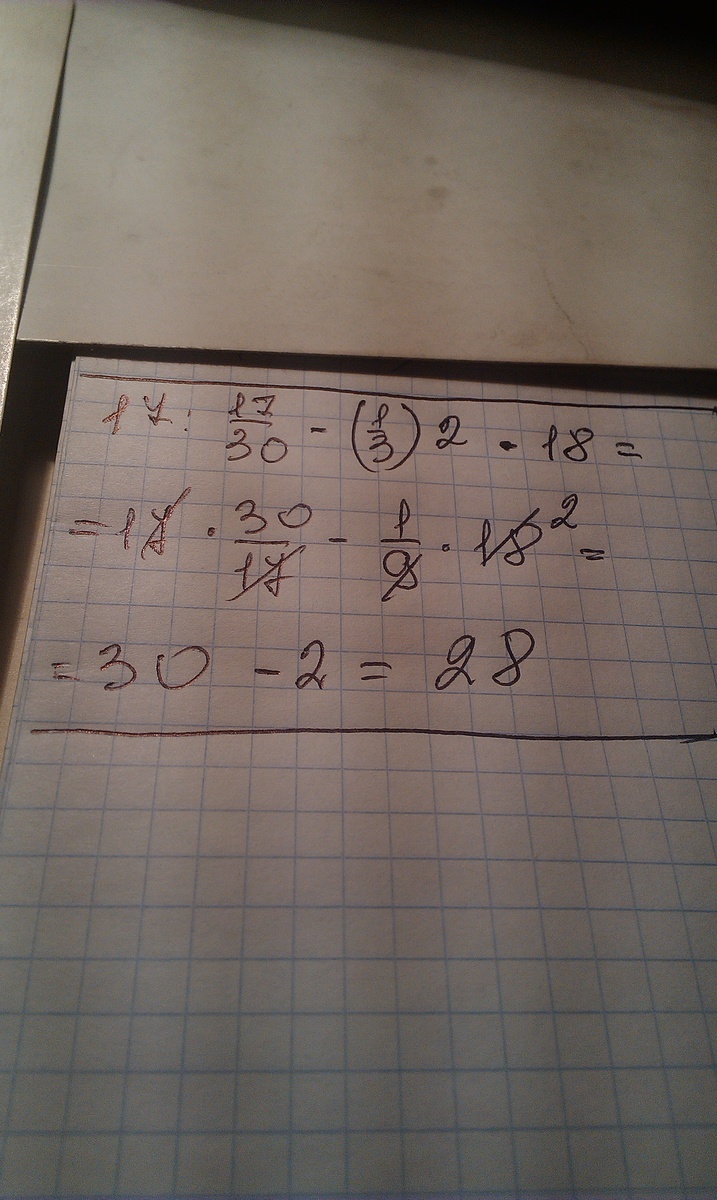 17 : 17/30 - (1/3) 2 · 18 =
= 17 · 30/17 - 1/9 · 18 2 =
= 30 - 2 = 28